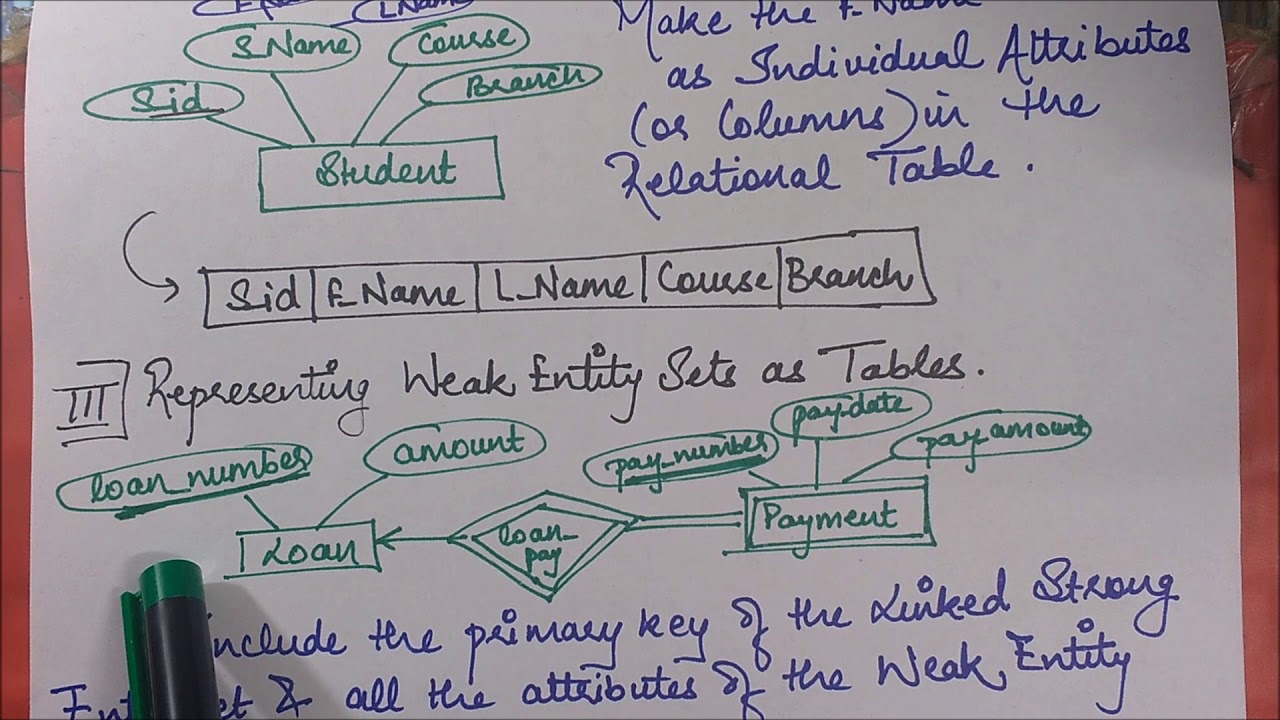 L_Name
Make the F_Name
S_Name
Course
as Individual Attributes
Sid
Branch
(or Columns) in the
Student
Relational Table.
Sid | F_Name | L_Name | Course | Branch
III Representing Weak Entity Sets as Tables.
loan_number
amount
pay_number
pay_date
pay_amount
Loan
loan_pay
Payment
include the primary key of the Linked Strong
& all the attributes of the Weak Entity